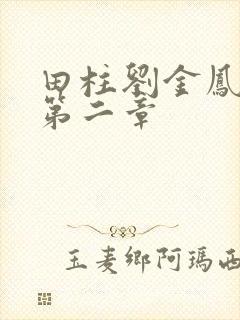 田柱劉金鳳
第二章
玉麦鄉阿瑪西